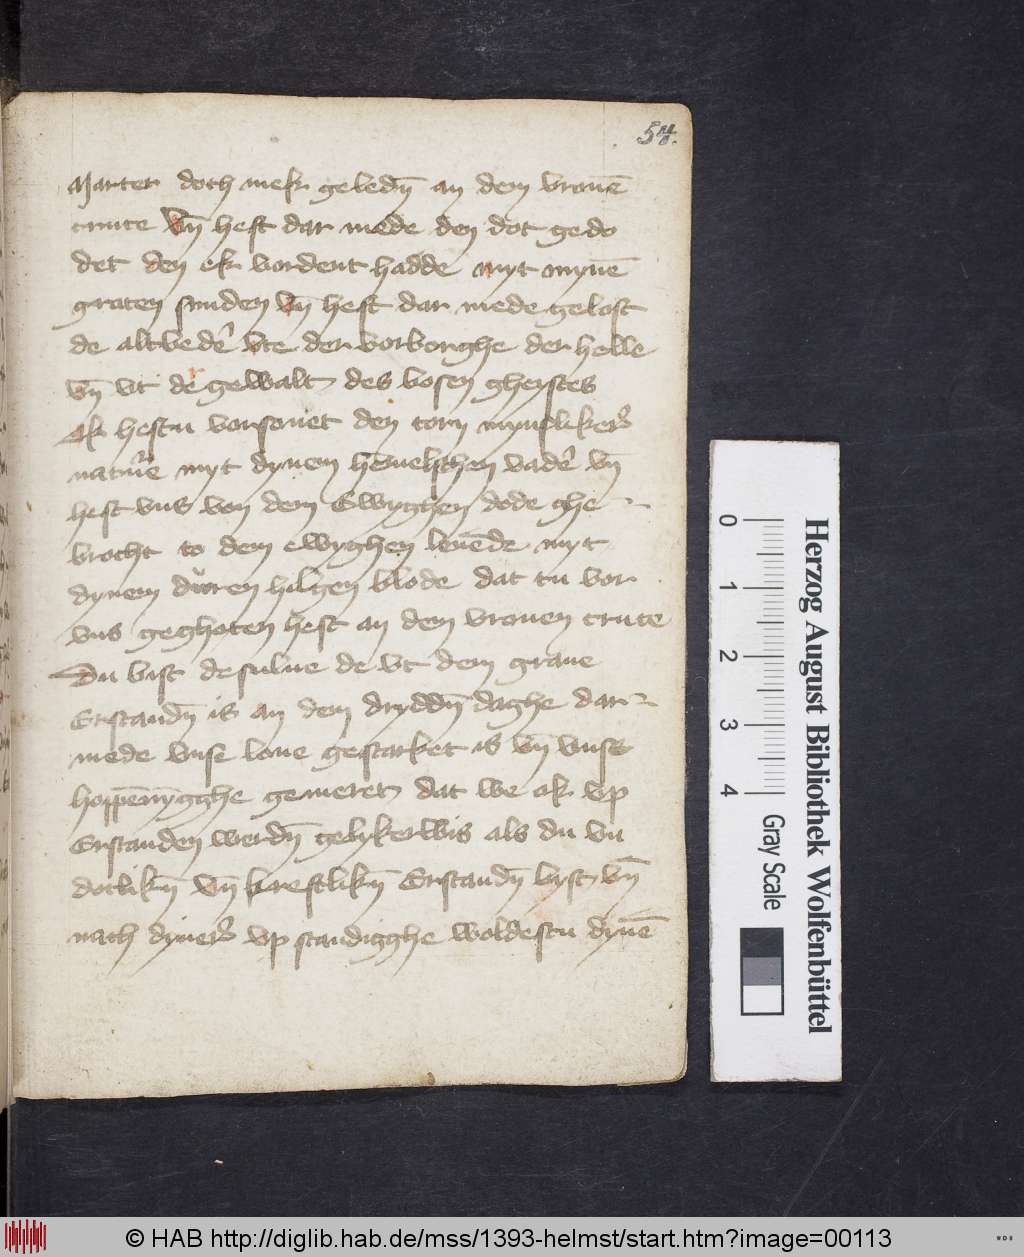 54.
Marter doch mek geledn̄ an dem vronē
cruce vn̄ hest dar mede den dot gedo
det den ek vordent hadde myt mynē
groten sunden vn̄ hest dar mede gelost
de altvedē vte der vorborghe der helle
vn̄ vt der gewalt des bosen gheystes
Ok hestu vorsonet den torn mynsliker
natūe myt dynem hēmelschen vadē vn̄
hest vns von dem Ewyghen dode ghe
brocht to dem ewyghen leuēde myt
dynem duren hilgen blode dat tu vor
vns geghoten hest an dem vronen cruce
Du bist de sulue de vt dem graue
Erstandn̄ is an dem dryddn̄ daghe dar
mede vnse loue gestarket is vn̄ vnse
hoppēnȳgghe gemeret dat we ok vp
Erstanden werdn̄ gelykerwis als du vn
dotlikn̄ vn̄ kreftlikn̄ Erstandn̄ byst vn̄
nach dyner vp standigghe woldestu dynē
0 1 2 3 4
Gray Scale
Herzog August Bibliothek Wolfenbüttel
© HAB http://diglib.hab.de/mss/1393-helmst/start.htm?image=00113